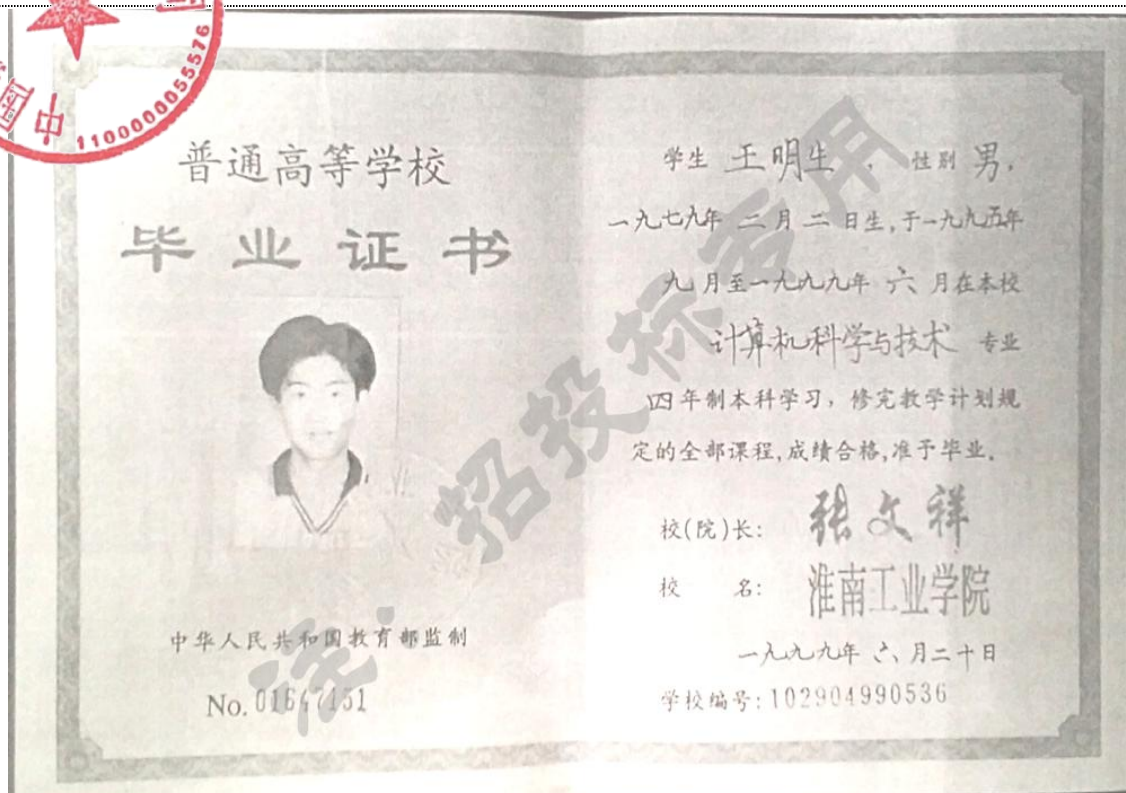 中国
1100000055576
普通高等学校
毕业证书
中华人民共和国教育部监制
No.
学生 王明生 ，性别 男，
一九七九年 二月二日生，于一九九五年
九月至一九九九年 六 月在本校
计算机科学与技术 专业
四年制本科学习，修完教学计划规
定的全部课程，成绩合格，准予毕业。
校(院)长： 张文祥
校 名： 淮南工业学院
一九九九年 六 月二十日
学校编号：102904990536
注：招投标专用